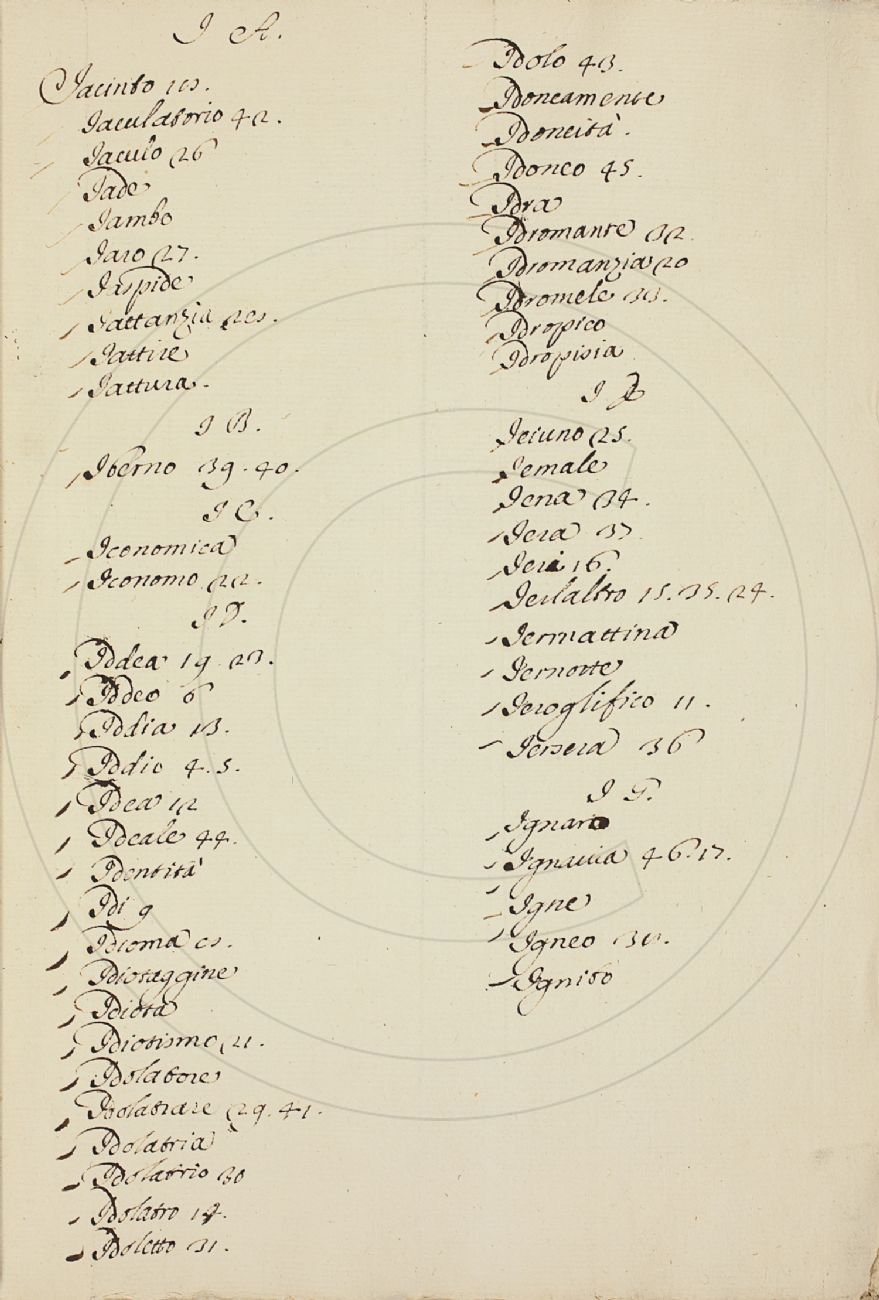 I A.
Jacinto 10.
Iaculatorio 42.
Iaculo 26
Iade
Iambo
Iaro 27.
Iaspide
Iattanzia
Iattire
Iattura.
I B.
Iberno 39. 40.
I C.
Iconomica
Iconomo 22.
I D.
Iddea 19. 23.
Iddeo 6
Iddia 13.
Iddio 4. 5.
Idea 12
Ideale 44.
Identità
Idi 9
Idioma
Idiotaggine
Idiota
Idiotismo 21.
Idolatore
Idolatrare 29. 41.
Idolatria
Idolatrio 30
Idolatro 14.
Idoletto 31.
Idolo 43.
Idoneamente
Idoneità.
Idoneo 45.
Idra
Idromante 32.
Idromanzia 20
Idromele 33.
Idropico
Idropisia
I E
Ieiuno 25.
Iemale
Iena 34.
Iera 37.
Ieri 16.
Ierlaltro 15. 35. 24.
Iermattina
Iernotte
Ieroglifico 11.
Iersera 36
I G.
Ignaro
Ignavia 46. 17.
Igne
Igneo
Ignito